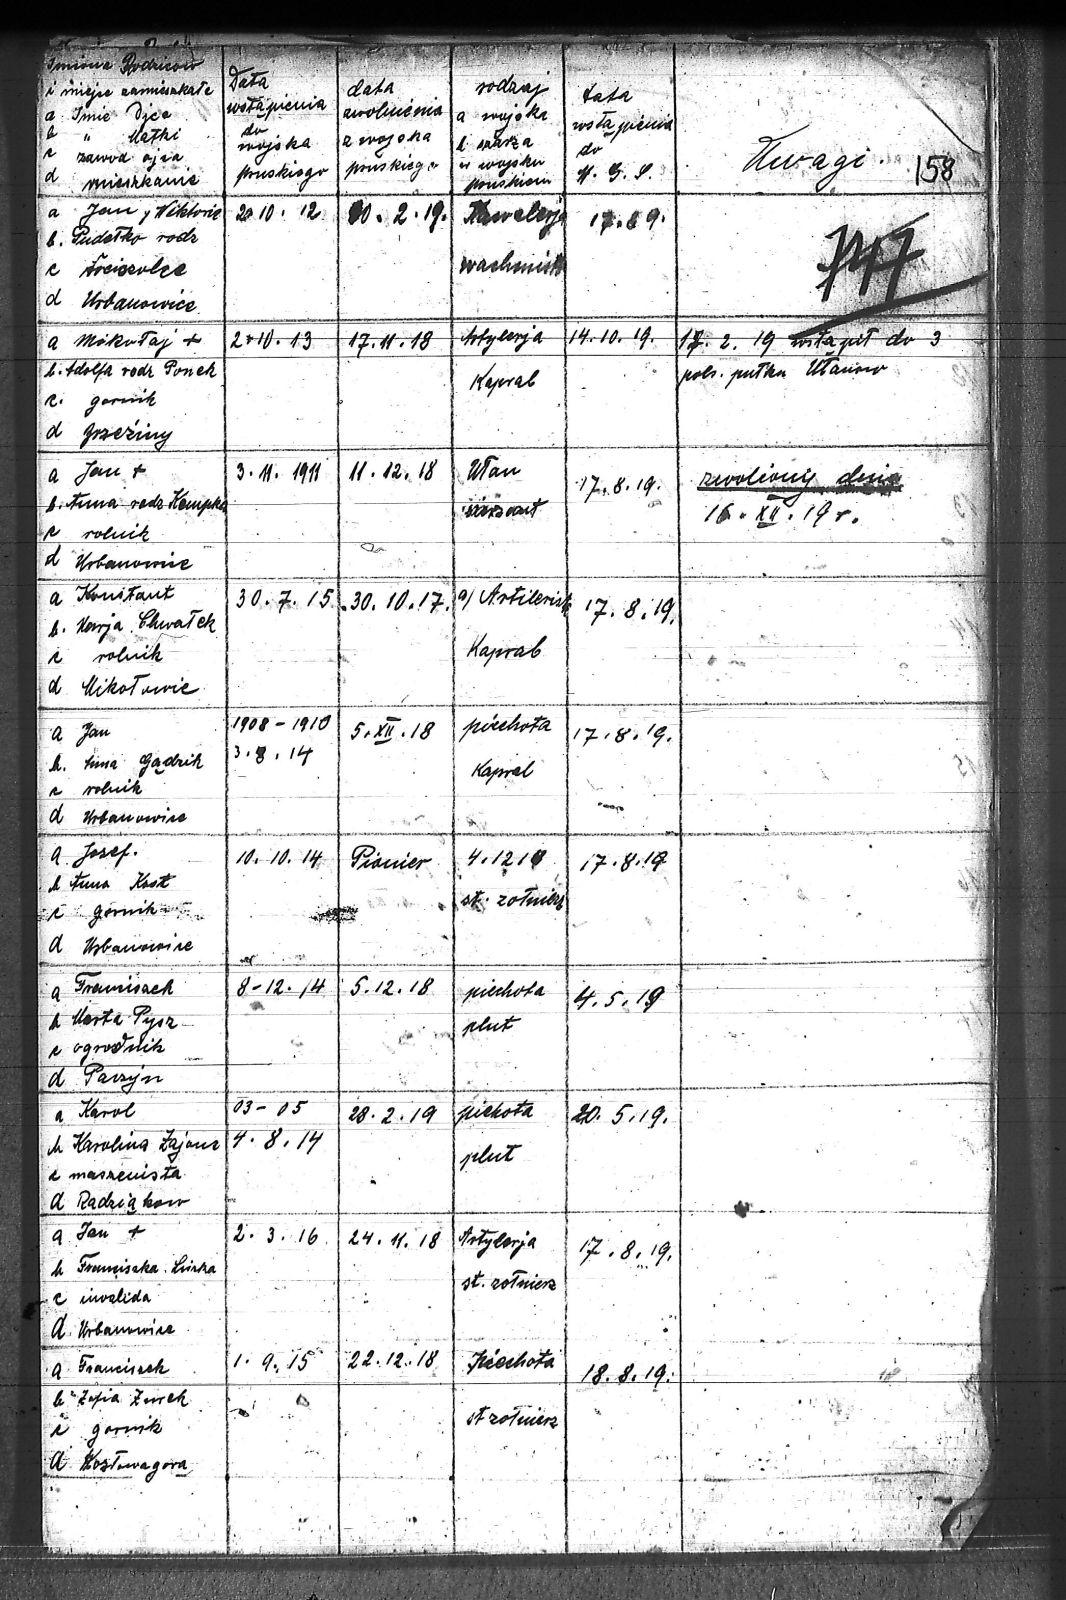 Imiona Rodziców
i miejsce zamieszkałe
a Imie Ojca
b " Matki
c zawod ojca
d mieszkanie
Data
wstąpienia
do
wojska
pruskiego
data
zwolnienia
z wojska
pruskiego
rodzaj
a wojska
b szarza
w wojsku
pruskiem
data
wstąpienia
do
W. G. S.
Uwagi.
158
747
a Jan, Wiktorie
b. Pudełko rodz
c
d Urbanowice
10. 12
2. 19.
Kawalerja
wachmist
17. 8 9.
a Mikołaj +
b. Adolfa rodz Ponek
c. gornik
d Brzeziny
2 10. 13
17. 11. 18
Artylerja
Kapral
14. 10. 19.
17. 2. 19 wstąpił do 3
pols. pułku Ułanow
a Jan +
b. Anna rodz Kempka
c rolnik
d Urbanowice
3. 11. 1911
11. 12. 18
Ułan
17. 8. 19.
zwolniony dnia
16. XII. 19 r.
a Konstant
b. Marja Chwałek
c rolnik
d Mikołowie
30. 7. 15
30. 10. 17.
a/ Artilerist
Kapral
17. 8. 19.
a Jan
b. Anna Gądzik
c rolnik
d Urbanowice
1908 - 1910
3. 8. 14
5. XII. 18
piechota
Kapral
17. 8. 19.
a Jozef.
b Anna Kost
c gornik
d Urbanowice
10. 10. 14
Pionier
4. 12. 18
st. zołnierz
17. 8. 19
a Franciszek
b Marta Pysz
c ogrodnik
d
8 - 12. 14
5. 12. 18
piechota
plut
4. 5. 19
a Karol
b Karolina Zajonc
c maszenista
d Radziąkow
03 - 05
4. 8. 14
28. 2. 19
piechota
plut
20. 5. 19.
a Jan +
b Franciszka
c inwalida
d Urbanowice
2. 3. 16
24. 11. 18
Artylerja
st. zołnierz
17. 8. 19.
a Franciszek
b Zofia Zurek
c gornik
d Kozłowagora
1. 9. 15
22. 12. 18
Piechota
st zołnierz
18. 8. 19.